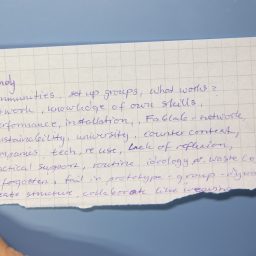 communities, set up groups, what works =
network, knowledge of own skills,
performance, installation, Fablab - network,
sustainability, university, counter context,
tech, reuse, lack of reflexion,
practical support, routine, ideology waste
forgotten, fail in prototype = group
create structure, collaborate like